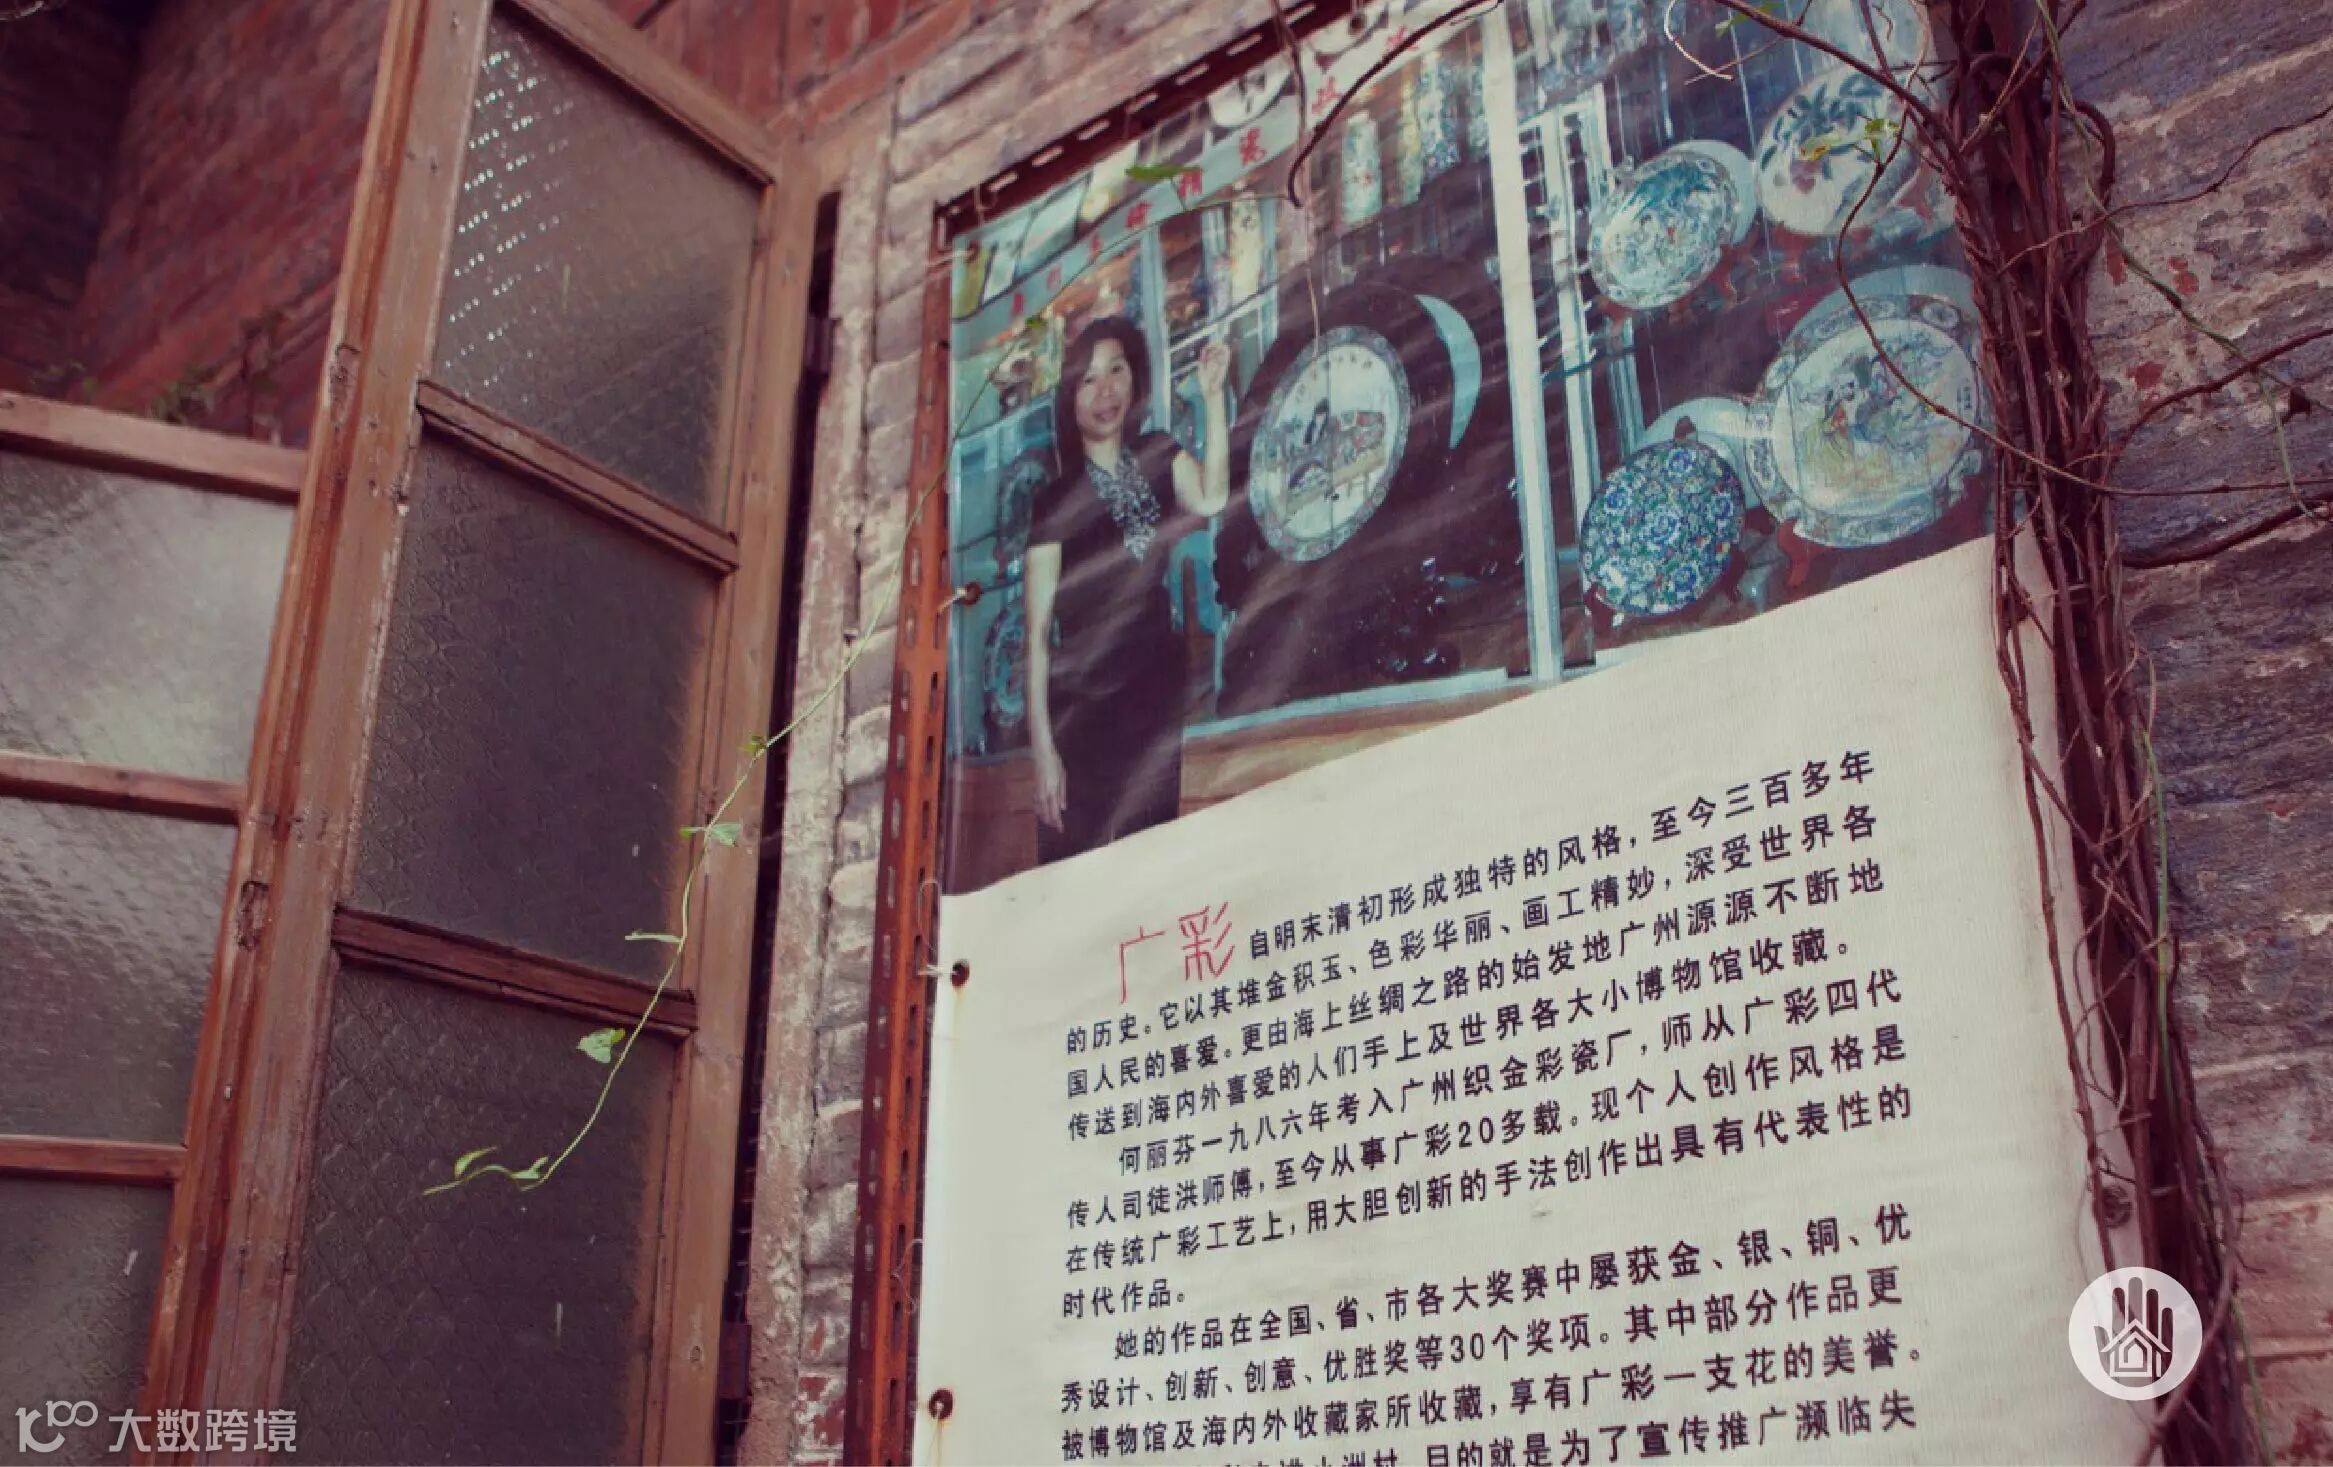 广彩 自明末清初形成独特的风格，至今三百多年
的历史。它以其堆金积玉、色彩华丽、画工精妙，深受世界各
国人民的喜爱。更由海上丝绸之路的始发地广州源源不断地
传送到海内外喜爱的人们手上及世界各大小博物馆收藏。
何丽芬一九八六年考入广州织金彩瓷厂，师从广彩四代
传人司徒洪师傅，至今从事广彩20多载。现个人创作风格是
在传统广彩工艺上，用大胆创新的手法创作出具有代表性的
时代作品。
她的作品在全国、省、市各大奖赛中屡获金、银、铜、优
秀设计、创新、创意、优胜奖等30个奖项。其中部分作品更
被博物馆及海内外收藏家所收藏，享有广彩一支花的美誉。
小洲村，目的就是为了宣传推广濒临失
大数跨境